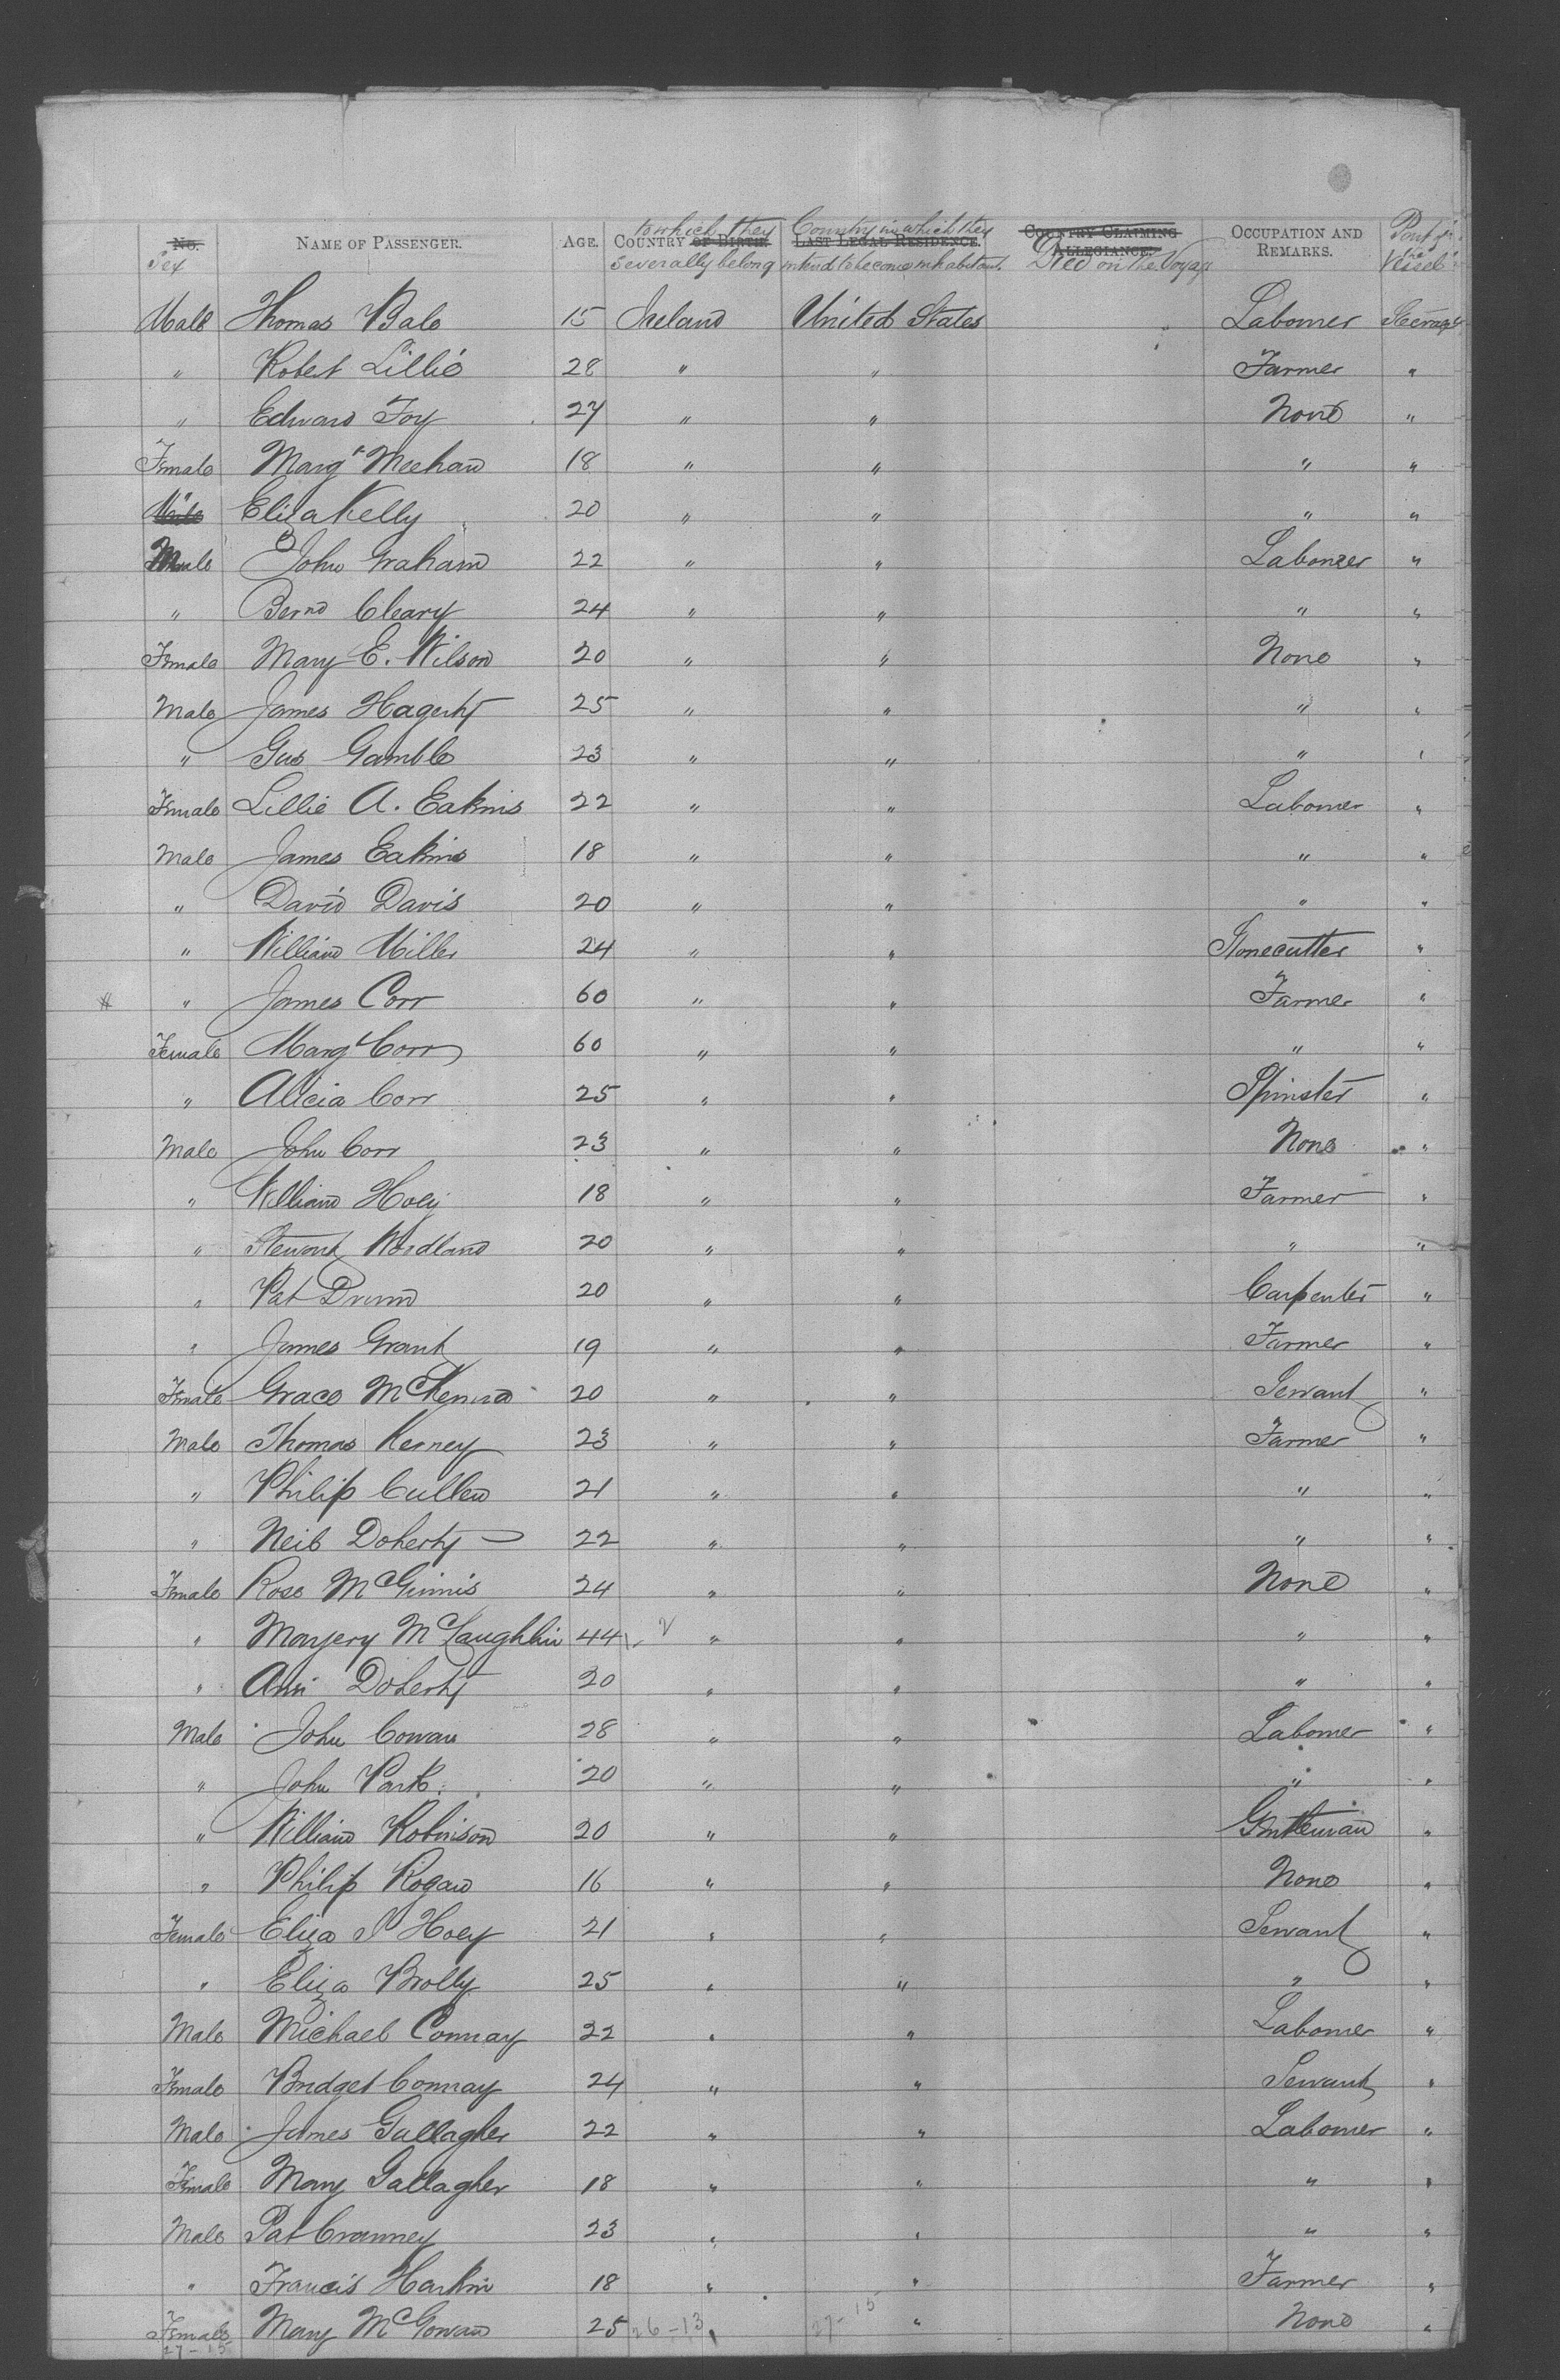 to which they Country in which they Part of
No. NAME OF PASSENGER. AGE. COUNTRY OF BIRTH. LAST LEGAL RESIDENCE. COUNTRY CLAIMING ALLEGIANCE. OCCUPATION AND REMARKS. the
Sex severally belong intend to become inhabitants Died on the Voyage Vessel
Male Thomas Bale 15 Ireland United States Labourer Steerage
" Robert Lillie 28 " " Farmer "
" Edward Foy 27 " " None "
Female Margt Meehan 18 " " " "
" Eliza Kelly 20 " " " "
Male John Graham 22 " " Labourer "
" Bernd Cleary 24 " " " "
Female Mary E. Wilson 20 " " None "
Male James Hagerty 25 " " " "
" Gus Gamble 23 " " " "
Female Lillie A. Eakins 22 " " Labourer "
Male James Eakins 18 " " " "
" David Davis 20 " " " "
" William Miller 24 " " Stonecutter "
" James Corr 60 " " Farmer "
Female Margt Corr 60 " " " "
" Alicia Corr 25 " " Spinster "
Male John Corr 23 " " None "
" William Hoey 18 " " Farmer "
" Stewart Woodland 20 " " " "
" Pat Drum 20 " " Carpenter "
" James Grant 19 " " Farmer "
Female Grace McKenna 20 " " Servant "
Male Thomas Kerney 23 " " Farmer "
" Philip Cullen 21 " " " "
" Neil Doherty 22 " " " "
Female Rose McGinnis 24 " " None "
" Marjery McLaughlin 44 " " " "
" Ann Doherty 20 " " " "
Male John Cowan 28 " " Labourer "
" John Park 20 " " " "
" William Robinson 20 " " Gentleman "
" Philip Rogan 16 " " None "
Female Eliza J Hoey 21 " " Servant "
" Eliza Brolly 25 " " " "
Male Michael Conway 22 " " Labourer "
Female Bridget Conway 24 " " Servant "
Male James Gallagher 22 " " Labourer "
Female Mary Gallagher 18 " " " "
Male Pat Cranney 23 " " " "
" Francis Harkin 18 " " Farmer "
Female Mary McGowan 25 26-13 " 27-15 " None "
27-15